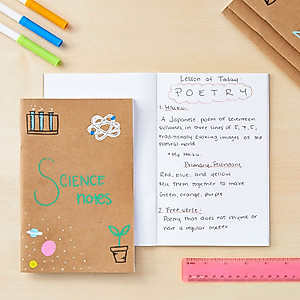 SCIENCE
notes
Lesson of Today:
POETRY
1. Haiku:
A Japanese poem of seventeen
syllables, in three lines of 5, 7, 5,
traditionally evoking images of the
natural world.
* My Haiku:
Primary, Secondary
Red, blue, and yellow
Mix them together to make
Green, orange, purple
2. Free verse:
Poetry that does not rhyme or
have a regular meter.